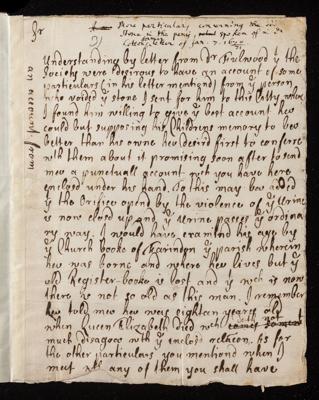 Sr
More particulars concerning the
stone in the penis, spoken of in
letter of Jan. 7.
Understanding by letter from Dr Fulwood yt the
Society were desirous to have an account of some
particulars (in his letter mentiond) from ye person
who voided ye stone I sent for him to this
I found him willing to give ye best account hee
could but supposing his Childrens memory to bee
better than his owne hee desird first to conferre
with them about it promising soon after to send
mee a punctuall account wch you have here
enclosd under his hand. To this may bee added
yt the Orifice opend by the violence of ye Urine
is now closd up and ye Urine passes ye ordina
ry way. I would have examind his age by
ye Church books of Farindon ye parish wherein
hee was borne and where hee lives but ye
old Register-booke is lost and yt wch is now
there is not so old as this man. I remember
hee told mee hee was eighteen years old
when Queen Elizabeth died wch not
much disagree with ye enclosd relacon. As for
the other particulars you mentiond when I
meet with any of them you shall have
an account from